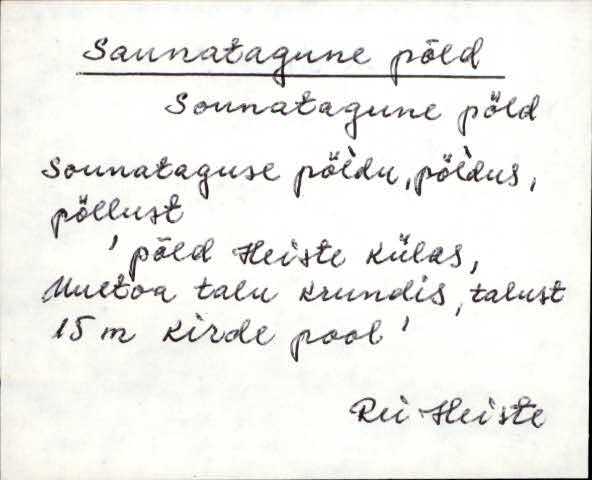 Saunatagune põld
Sounatagune põld
Sounataguse põl̀du, põl̀dus,
põllust
' põld Heiste külas,
talu krundis, talust
15 m kirde pool '
Rei Heiste